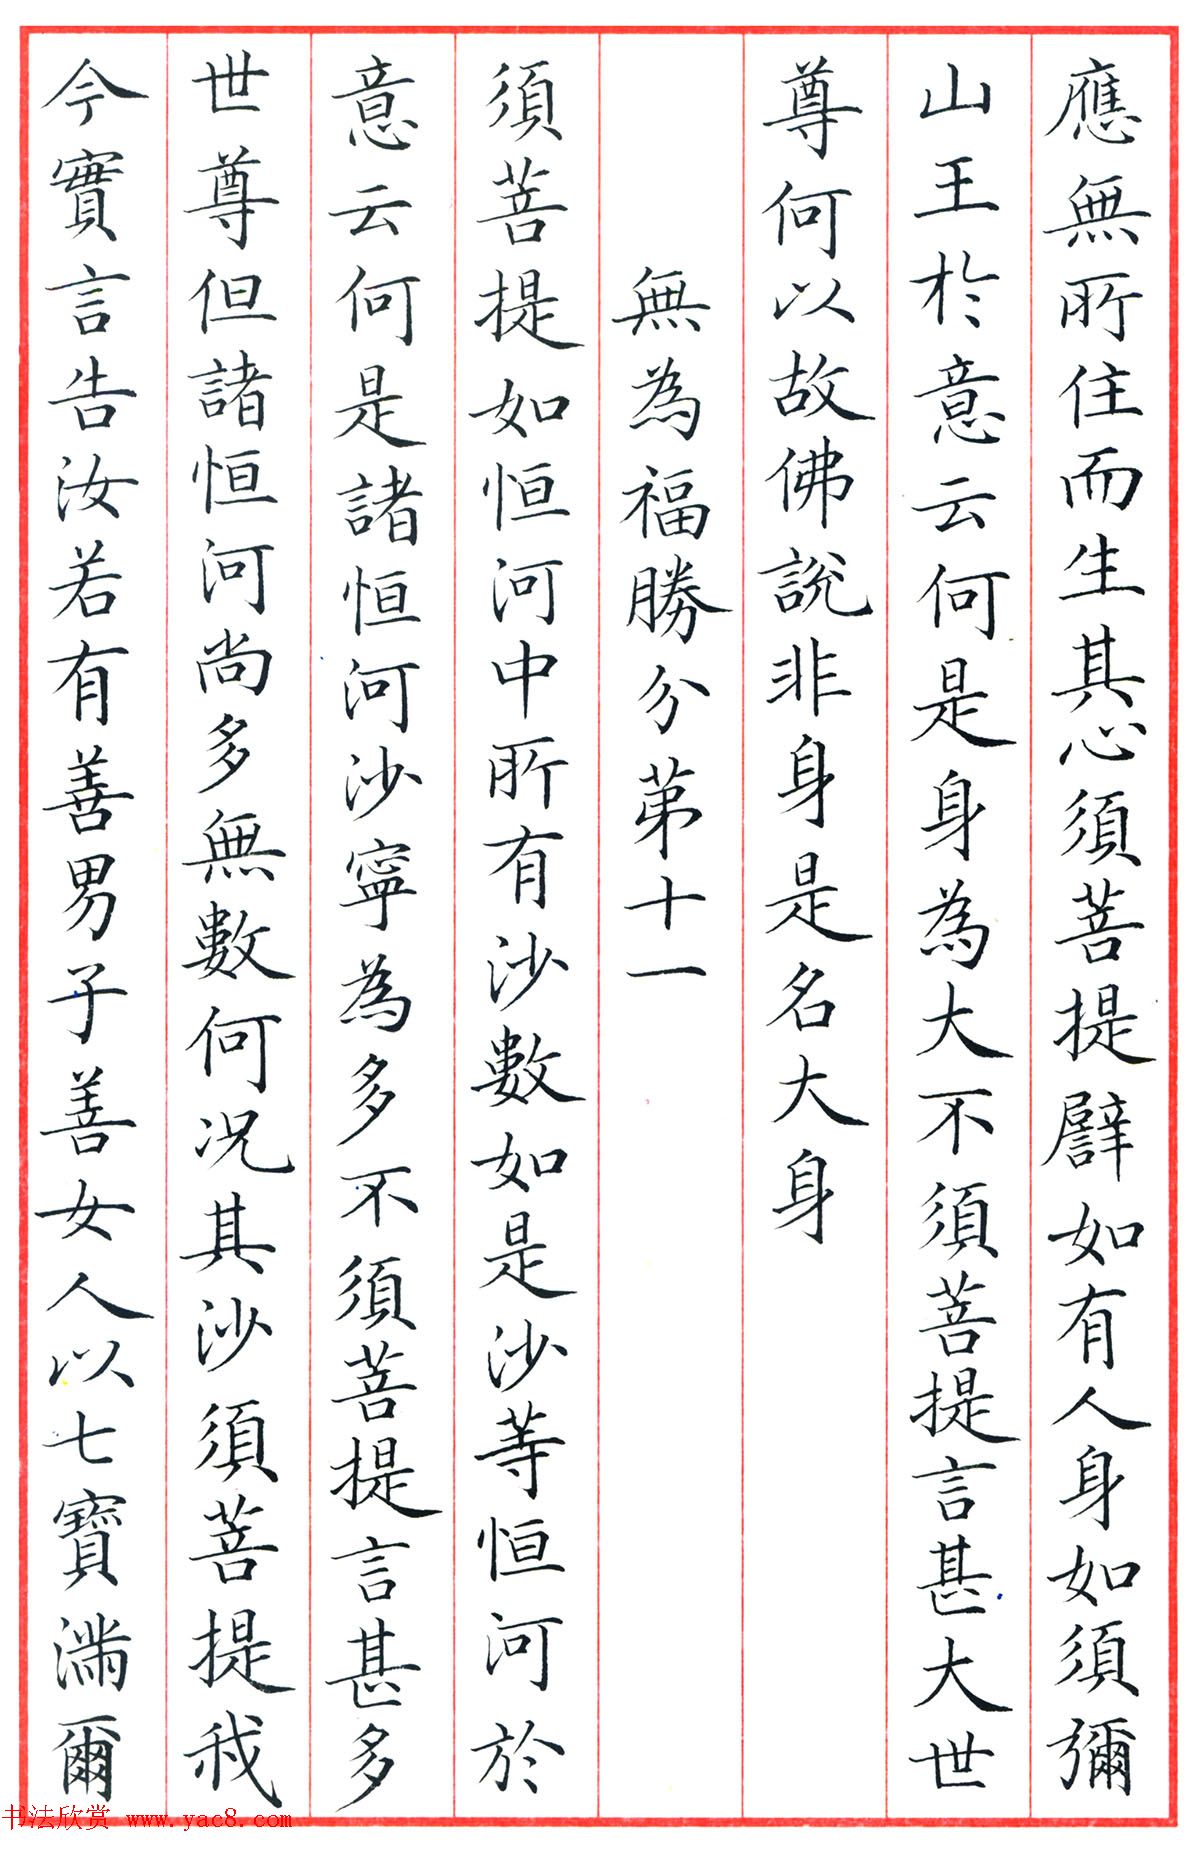 應無所住而生其心須菩提譬如有人身如須彌
山王於意云何是身為大不須菩提言甚大世
尊何以故佛說非身是名大身
無為福勝分第十一
須菩提如恒河中所有沙數如是沙等恒河於
意云何是諸恒河沙寧為多不須菩提言甚多
世尊但諸恒河尚多無數何況其沙須菩提我
今實言告汝若有善男子善女人以七寶滿爾
书法欣赏 www.yac8.com